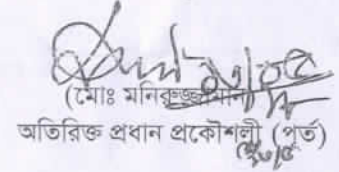 (মোঃ মনিরুজ্জামান)
অতিরিক্ত প্রধান প্রকৌশলী (পূর্ত)